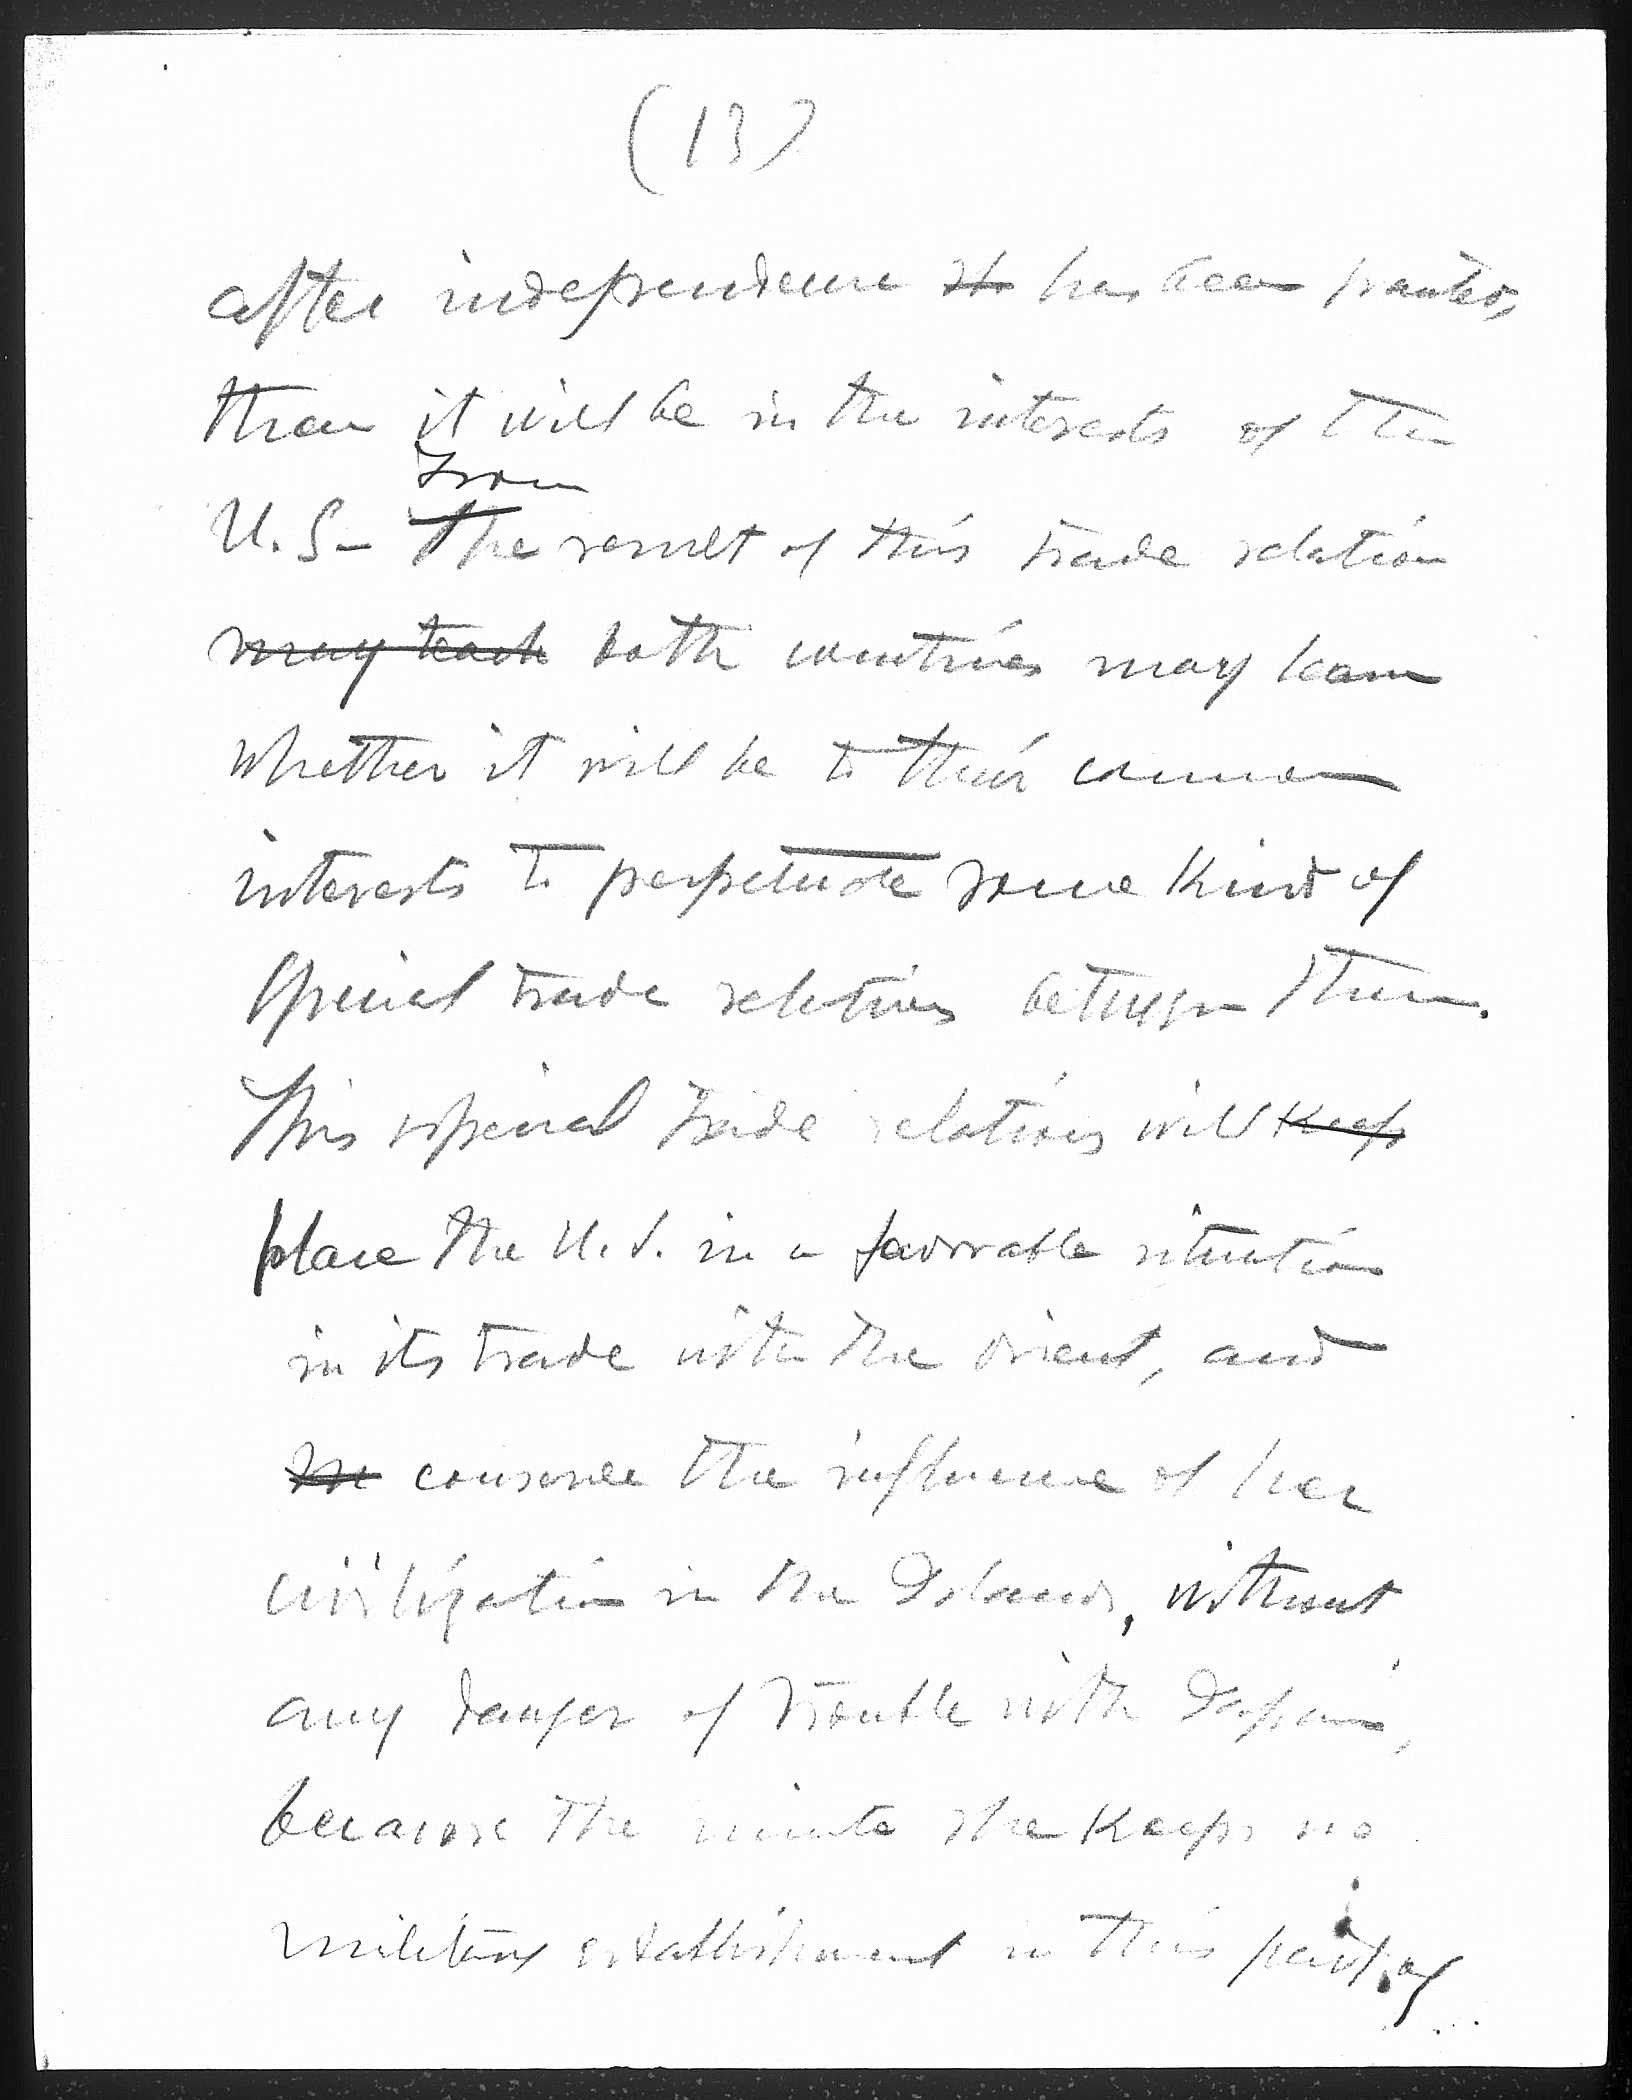 (13)
after independence has been granted,
than it will be in the interests of the
From
U.S. The result of this trade relation
may teach both countries may learn
whether it will be to their common
interests to perpetuate some kind of
special trade relations between them.
This special trade relations will keep
place the U.S. in a favorable situation
in its trade with the orient, and
conserve the influence of her
civilization in the Islands, without
any danger of trouble with Japan,
because the minute she keeps no
military establishment in this part of